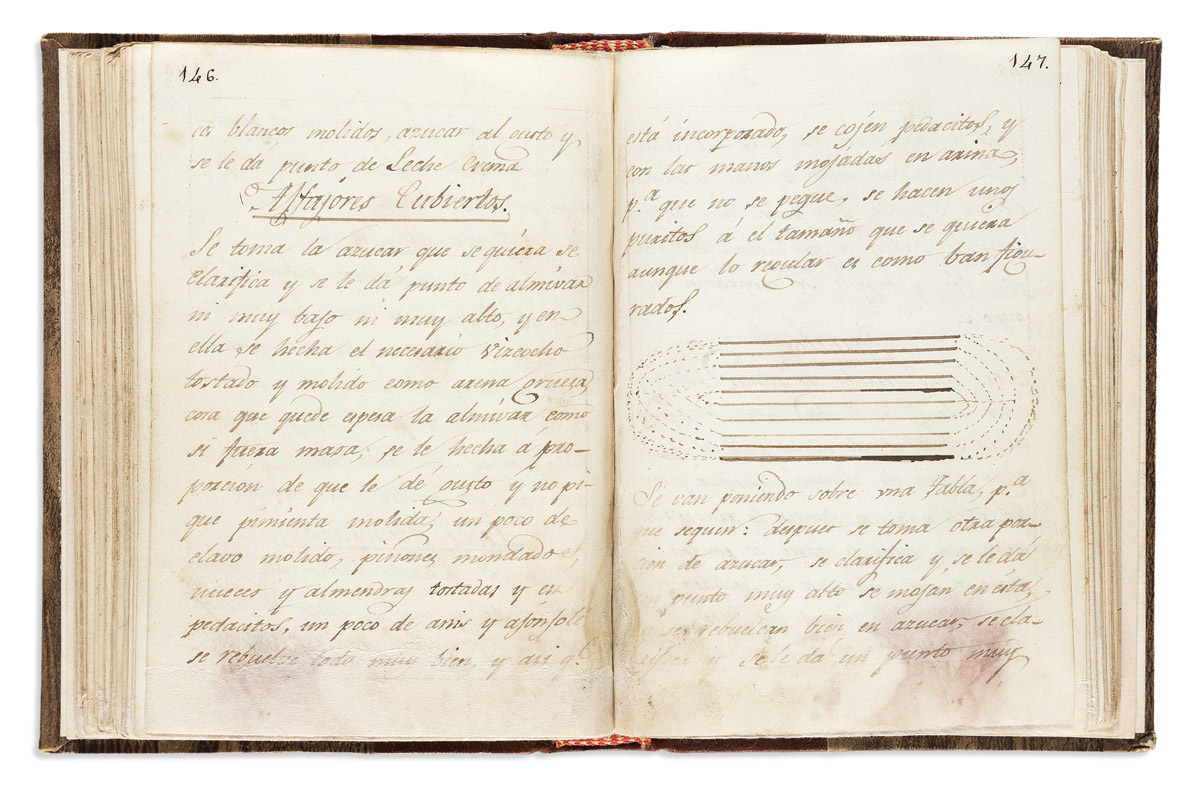 146.
cos blancos molidos, azucar al gusto y
se le dá punto de Leche Crema
Alfajóres Cubiertos.
Se toma la azucar que se quiera se
clarifica y se le dá punto de almivar
ni muy bajo ni muy alto, y en
ella se hecha el necesario vizcocho
tostado y molido como arina gruesa
cosa que quede espesa la almivar como
si fuera masa, se le hecha á pro-
porción de que le dé gusto y no pi-
que pimienta molida, un poco de
clavo molido, piñones mondados,
nueces y almendras tostadas y en
pedacitos, un poco de anis y ajonjolí
se rebuelve todo muy bien, y asi q.e
147.
está incorporado, se cojen pedacitos, y
con las manos mojadas en arina,
p.a que no se pegue, se hacen unos
puritos á el tamaño que se quiera
aunque lo regular es como ban figu-
rados.
Se van poniendo sobre una Tabla, p.a
que sequen: despues se toma otra por-
cion de azucar, se clarifica y se le dá
un punto muy alto se mojan en esta,
y se rebuelcan bien en azucar, se cla-
rifica y se le dá un punto muy